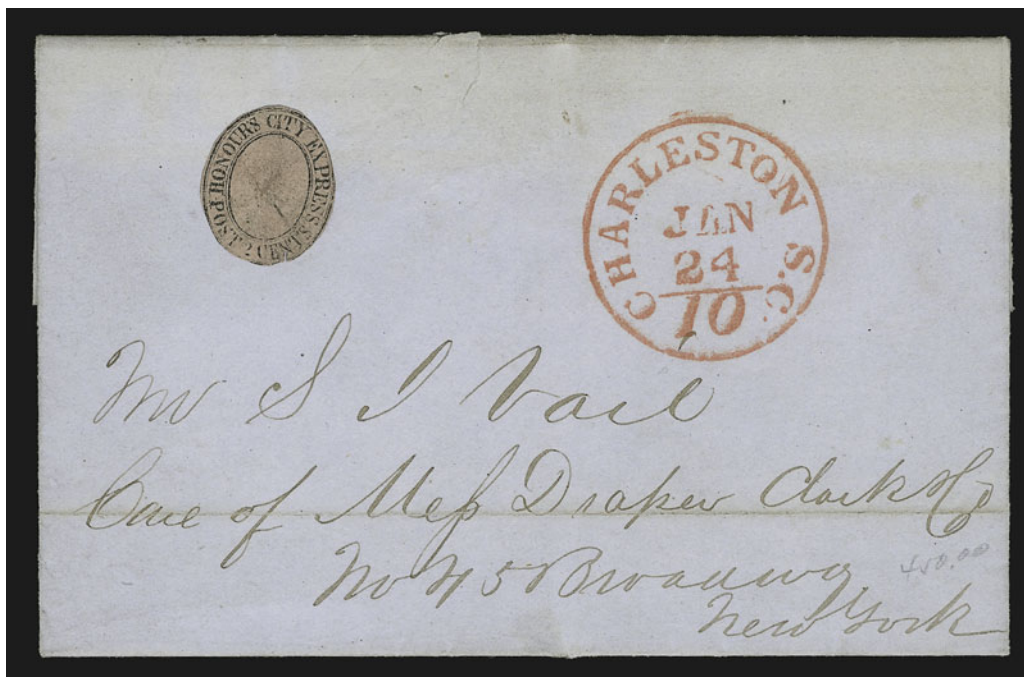 HONOURS CITY EXPRESS.
2 CENTS. POST
CHARLESTON S.C.
JAN
24
10
Mr S I Vail
Care of Mess Draper Clark & Co
No 45 Broadway
New York
450.00